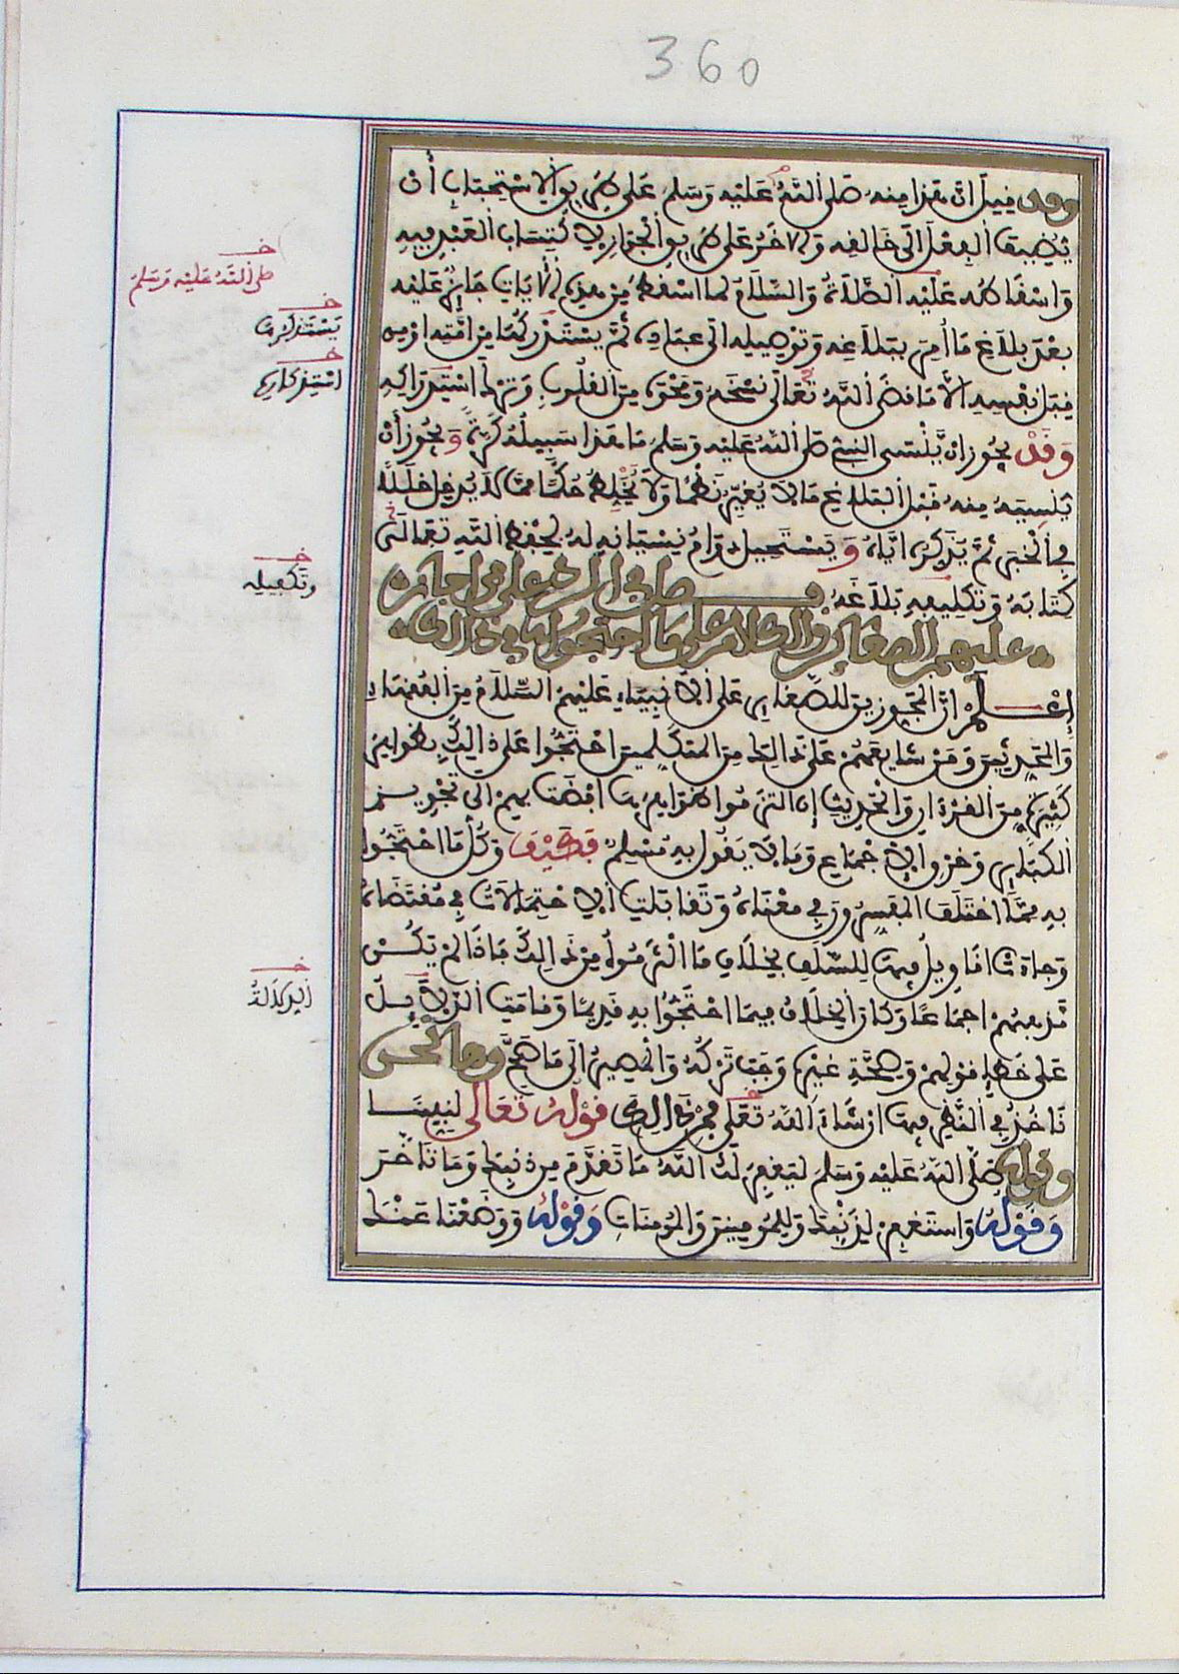 360
وقد قيل ان هذا منه صلى الله عليه وسلم على طريق الاستحباب أن
يضيف الفعل الى خالقه والاخر على طريق الجواز لاكتساب العبد فيه
واسقاطه عليه الصلاة والسلام لما اسقط من هذه الايات جائز عليه
بعد بلاغ ما أمر ببلاغه وتوصيله الى عباده ثم يستذكرها من امته او من
قبل نفسه الا ما قضى الله تعالى نسخه ومحوه من القلوب وترك استذكاره
وقد يجوز ان ينسى النبي صلى الله عليه وسلم ما هذا سبيله كرة ويجوز أن
ينسيه منه قبل البلاغ ما لا يغير نظما ولا يخلط حكما مما لا يدخل خللا
في الخبر ثم يذكره اياه ويستحيل دوام نسيانه له لحفظ الله تعالى
كتابه وتكليفه بلاغه فصل في الرد على من اجاز
عليهم الصغائر والكلام على ما احتجوا به في ذلك
إعلم ان المجوزين للصغائر على الانبياء عليهم السلام من الفقهاء
والمحدثين ومن شايعهم على ذلك من المتكلمين احتجوا على ذلك بظواهر
كثيرة من القرءان والحديث إن التزموا ظواهرها افضت بهم الى تجويز
الكبائر وخرق الاجماع وما لا يقول به مسلم فكيف وكل ما احتجوا
به مما اختلف المفسرون في معناه وتقابلت الاحتمالات في مقتضاه
وجاءت اقاويل فيها للسلف بخلاف ما التزموه من ذلك فاذا لم يكن
مذهبهم اجماعا وكان الخلاف فيما احتجوا به قديما وقامت الدلائل
على خطإ قولهم وصحة غيره وجب تركه والمصير الى ما صح وها نحن
ناخذ في النظر فيها ان شاء الله تعلى فمن ذلك قوله تعالى لنبينا
صلى الله عليه وسلم ليغفر لك الله ما تقدم من ذنبك وما تاخر وقوله
وقوله واستغفر لذنبك وللمومنين والمومنات وقوله ووضعنا عنك
خـ
صلى الله عليه وسلم
خـ
يستذكرها
خـ
استذكاره
خـ
وتكفيله
خـ